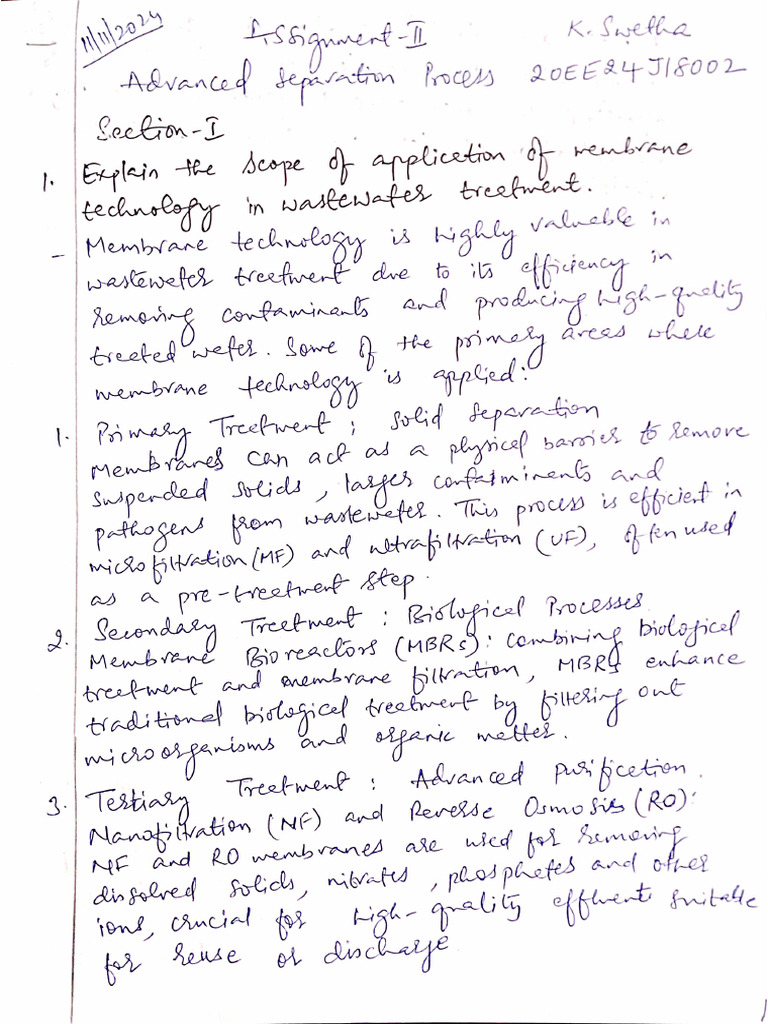 11/11/2024
Assignment-II
K. Swetha
Advanced Separation Process 20EE24J18002
Section-I
1. Explain the scope of application of membrane
technology in wastewater treatment.
- Membrane technology is highly valuable in
wastewater treatment due to its efficiency in
removing contaminants and producing high-quality
treated water. Some of the primary areas where
membrane technology is applied:
1. Primary Treatment: Solid Separation
Membranes can act as a physical barrier to remove
suspended solids, larger contaminents and
pathogens from wastewater. This process is efficient in
microfiltration (MF) and ultrafiltration (UF), often used
as a pre-treatment step.
2. Secondary Treatment: Biological Processes
Membrane Bioreactors (MBRs): Combining biological
treatment and membrane filtration, MBRs enhance
traditional biological treatment by filtering out
microorganisms and organic matter.
3. Tertiary Treatment: Advanced purification.
Nanofiltration (NF) and Reverse Osmosis (RO):
NF and RO membranes are used for removing
dissolved solids, nitrates, phosphates and other
ions, crucial for high-quality effluent suitable
for reuse or discharge
1